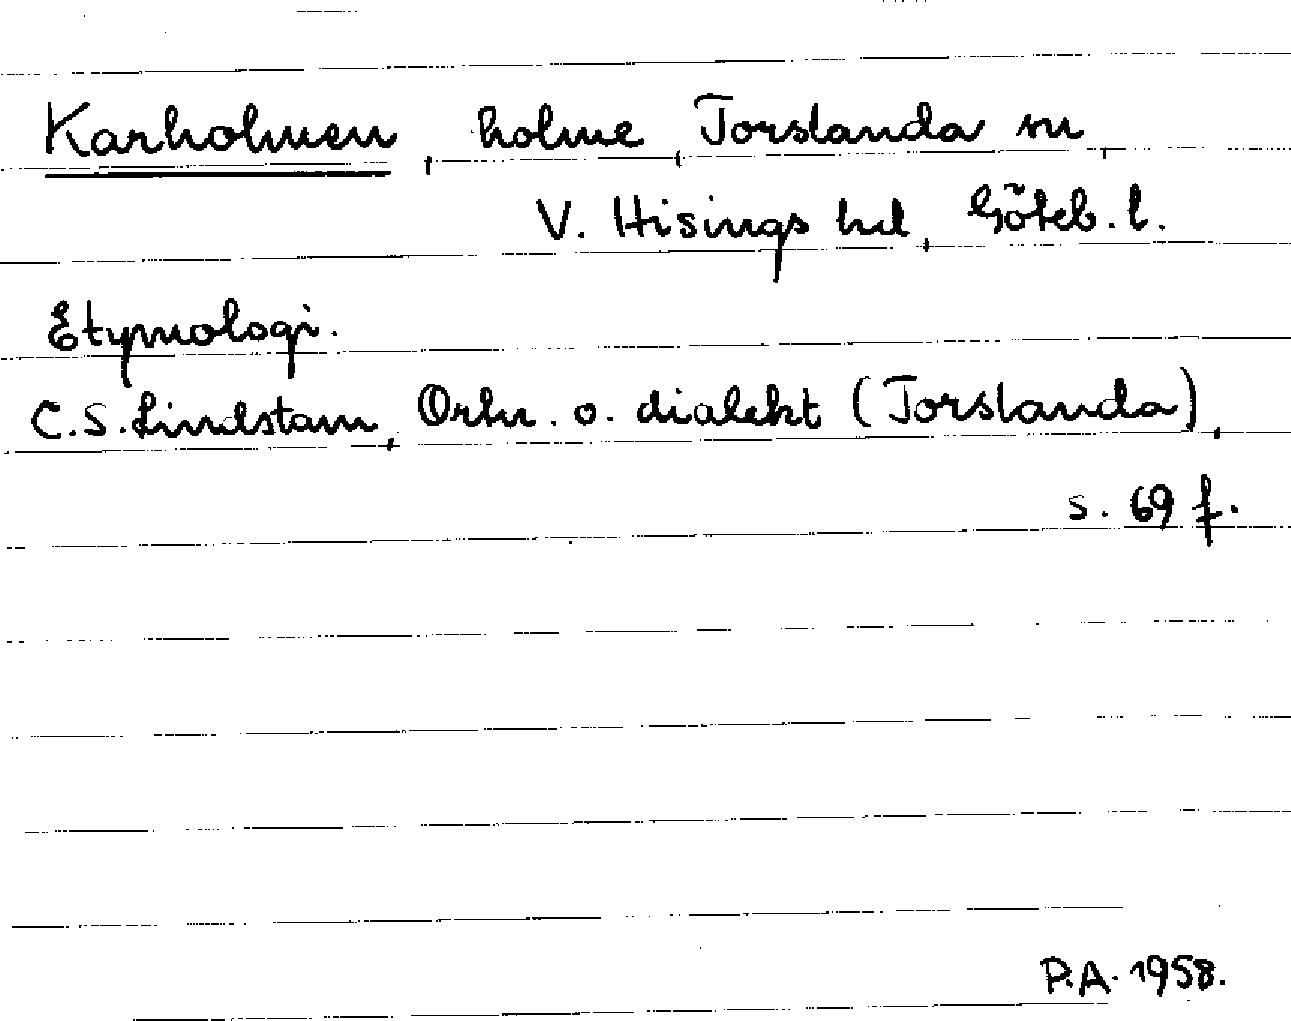 Karholmen, holme, Torslanda sn,
V. Hisings hd, Göteb. l.
Etymologi.
C.S. Lindstam, Ortn. o. dialekt (Torslanda),
s. 69 f.
P.A. 1958.